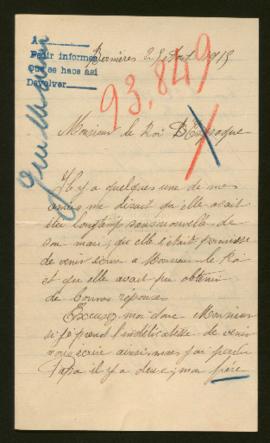 A
Pedir informes
Que se hace así
Devolver
Bernières 2 1915
93.849
Monsieur le Roi D'Espagne
Il y a quelques une de mes
amies me disant qu'elle avait
été longtemps sans nouvelle de
son mari, qu'elle s'était permise
de venir écrire a Monsieur le Roi
et que elle avait pu obtenir
de bonnes réponse
Excusez moi donc Monsieur
si je prend l'indélicatesse de venir
vous écrire ainsi mais j'ai perdu
Papa il y a deux; mon frère